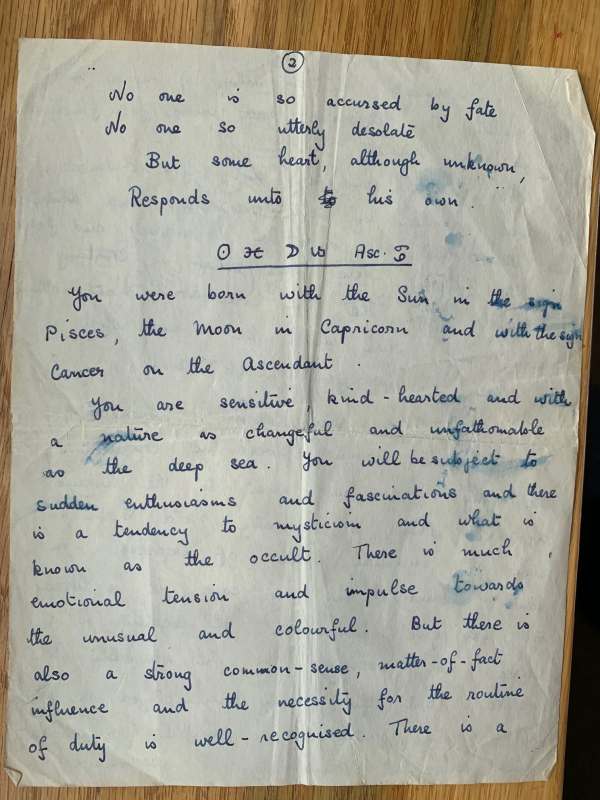 2
No one is so accursed by fate
No one so utterly desolate
But some heart, although unknown,
Responds unto to his own.
☉ ♓ ☽ ♑ Asc. ♋
You were born with the Sun in the sign
Pisces, the Moon in Capricorn and with the sign
Cancer on the Ascendant.
You are sensitive, kind-hearted and with
a nature as changeful and unfathomable
as the deep sea. You will be subject to
sudden enthusiasms and fascinations and there
is a tendency to mysticism and what is
known as the occult. There is much
emotional tension and impulse towards
the unusual and colourful. But there is
also a strong common-sense, matter-of-fact
influence and the necessity for the routine
of duty is well-recognised. There is a